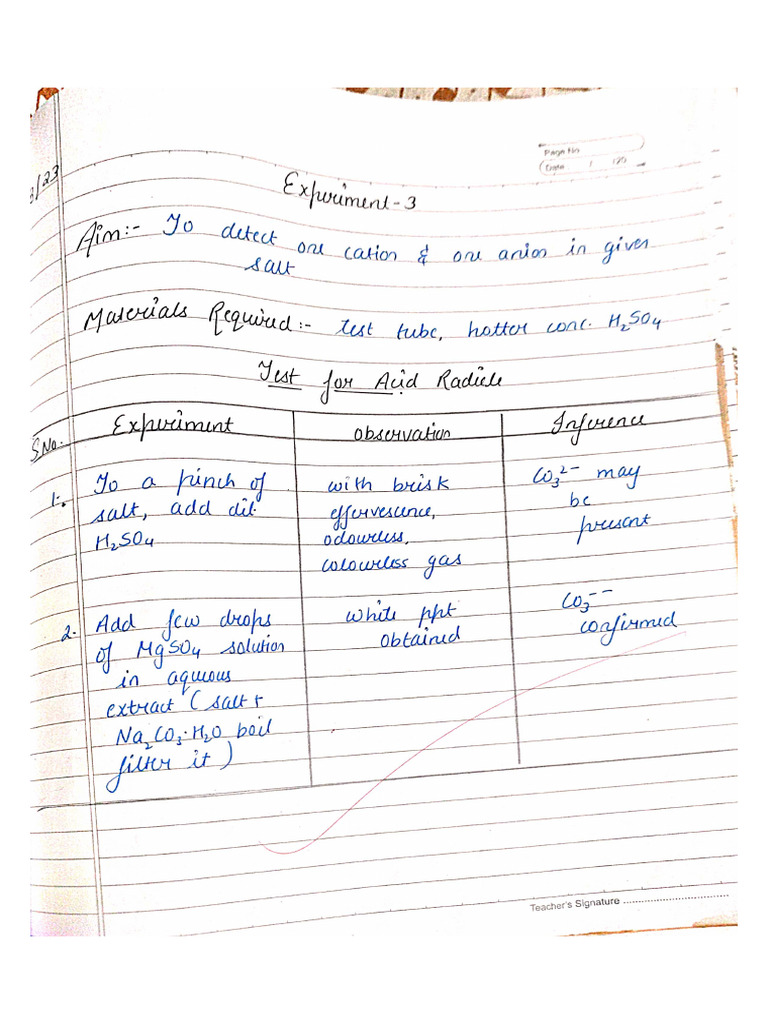 Page No
Date / /20
3/23
Experiment-3
Aim:- To detect one cation & one anion in given
salt
Materials Required:- test tube, hotter conc. H₂SO₄
Test for Acid Radicle
S.No. Experiment observation Inference
1. To a pinch of with brisk CO₃²⁻ may
salt, add dil. effervescence, be
H₂SO₄ odourless, present
colourless gas
2. Add few drops white ppt CO₃⁻⁻
of MgSO₄ solution obtained confirmed
in aqueous
extract (salt +
Na₂CO₃·H₂O boil
filter it)
Teacher's Signature